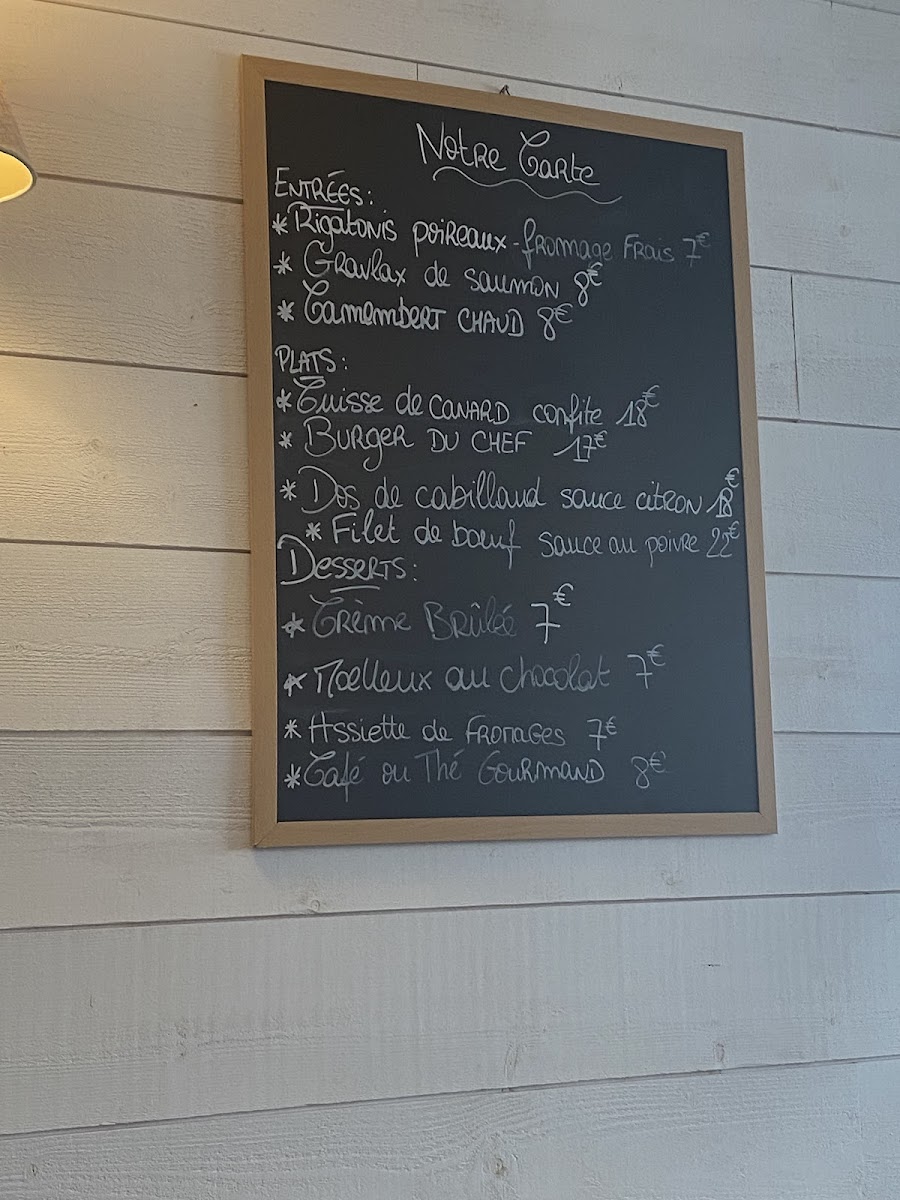 Notre Carte
Entrées:
* Rigatonis poireaux-fromage Frais 7€
* Gravlax de saumon 8€
* Camembert CHAUD 8€
Plats:
* Cuisse de CANARD confite 18€
* Burger DU CHEF 17€
* Dos de cabillaud sauce citron 18€
* Filet de bœuf sauce au poivre 22€
Desserts:
* Crème Brûléé 7€
* Moelleux au chocolat 7€
* Assiette de Fromages 7€
* Café ou Thé Gourmand 8€